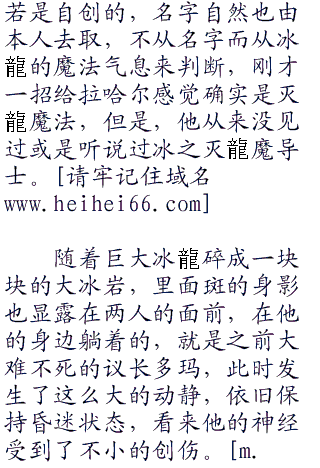 若是自创的，名字自然也由
本人去取，不从名字而从冰
龍的魔法气息来判断，刚才
一招给拉哈尔感觉确实是灭
龍魔法，但是，他从来没见
过或是听说过冰之灭龍魔导
士。[请牢记住域名
www.heihei66.com]
随着巨大冰龍碎成一块
块的大冰岩，里面斑的身影
也显露在两人的面前，在他
的身边躺着的，就是之前大
难不死的议长多玛，此时发
生了这么大的动静，依旧保
持昏迷状态，看来他的神经
受到了不小的创伤。[m.